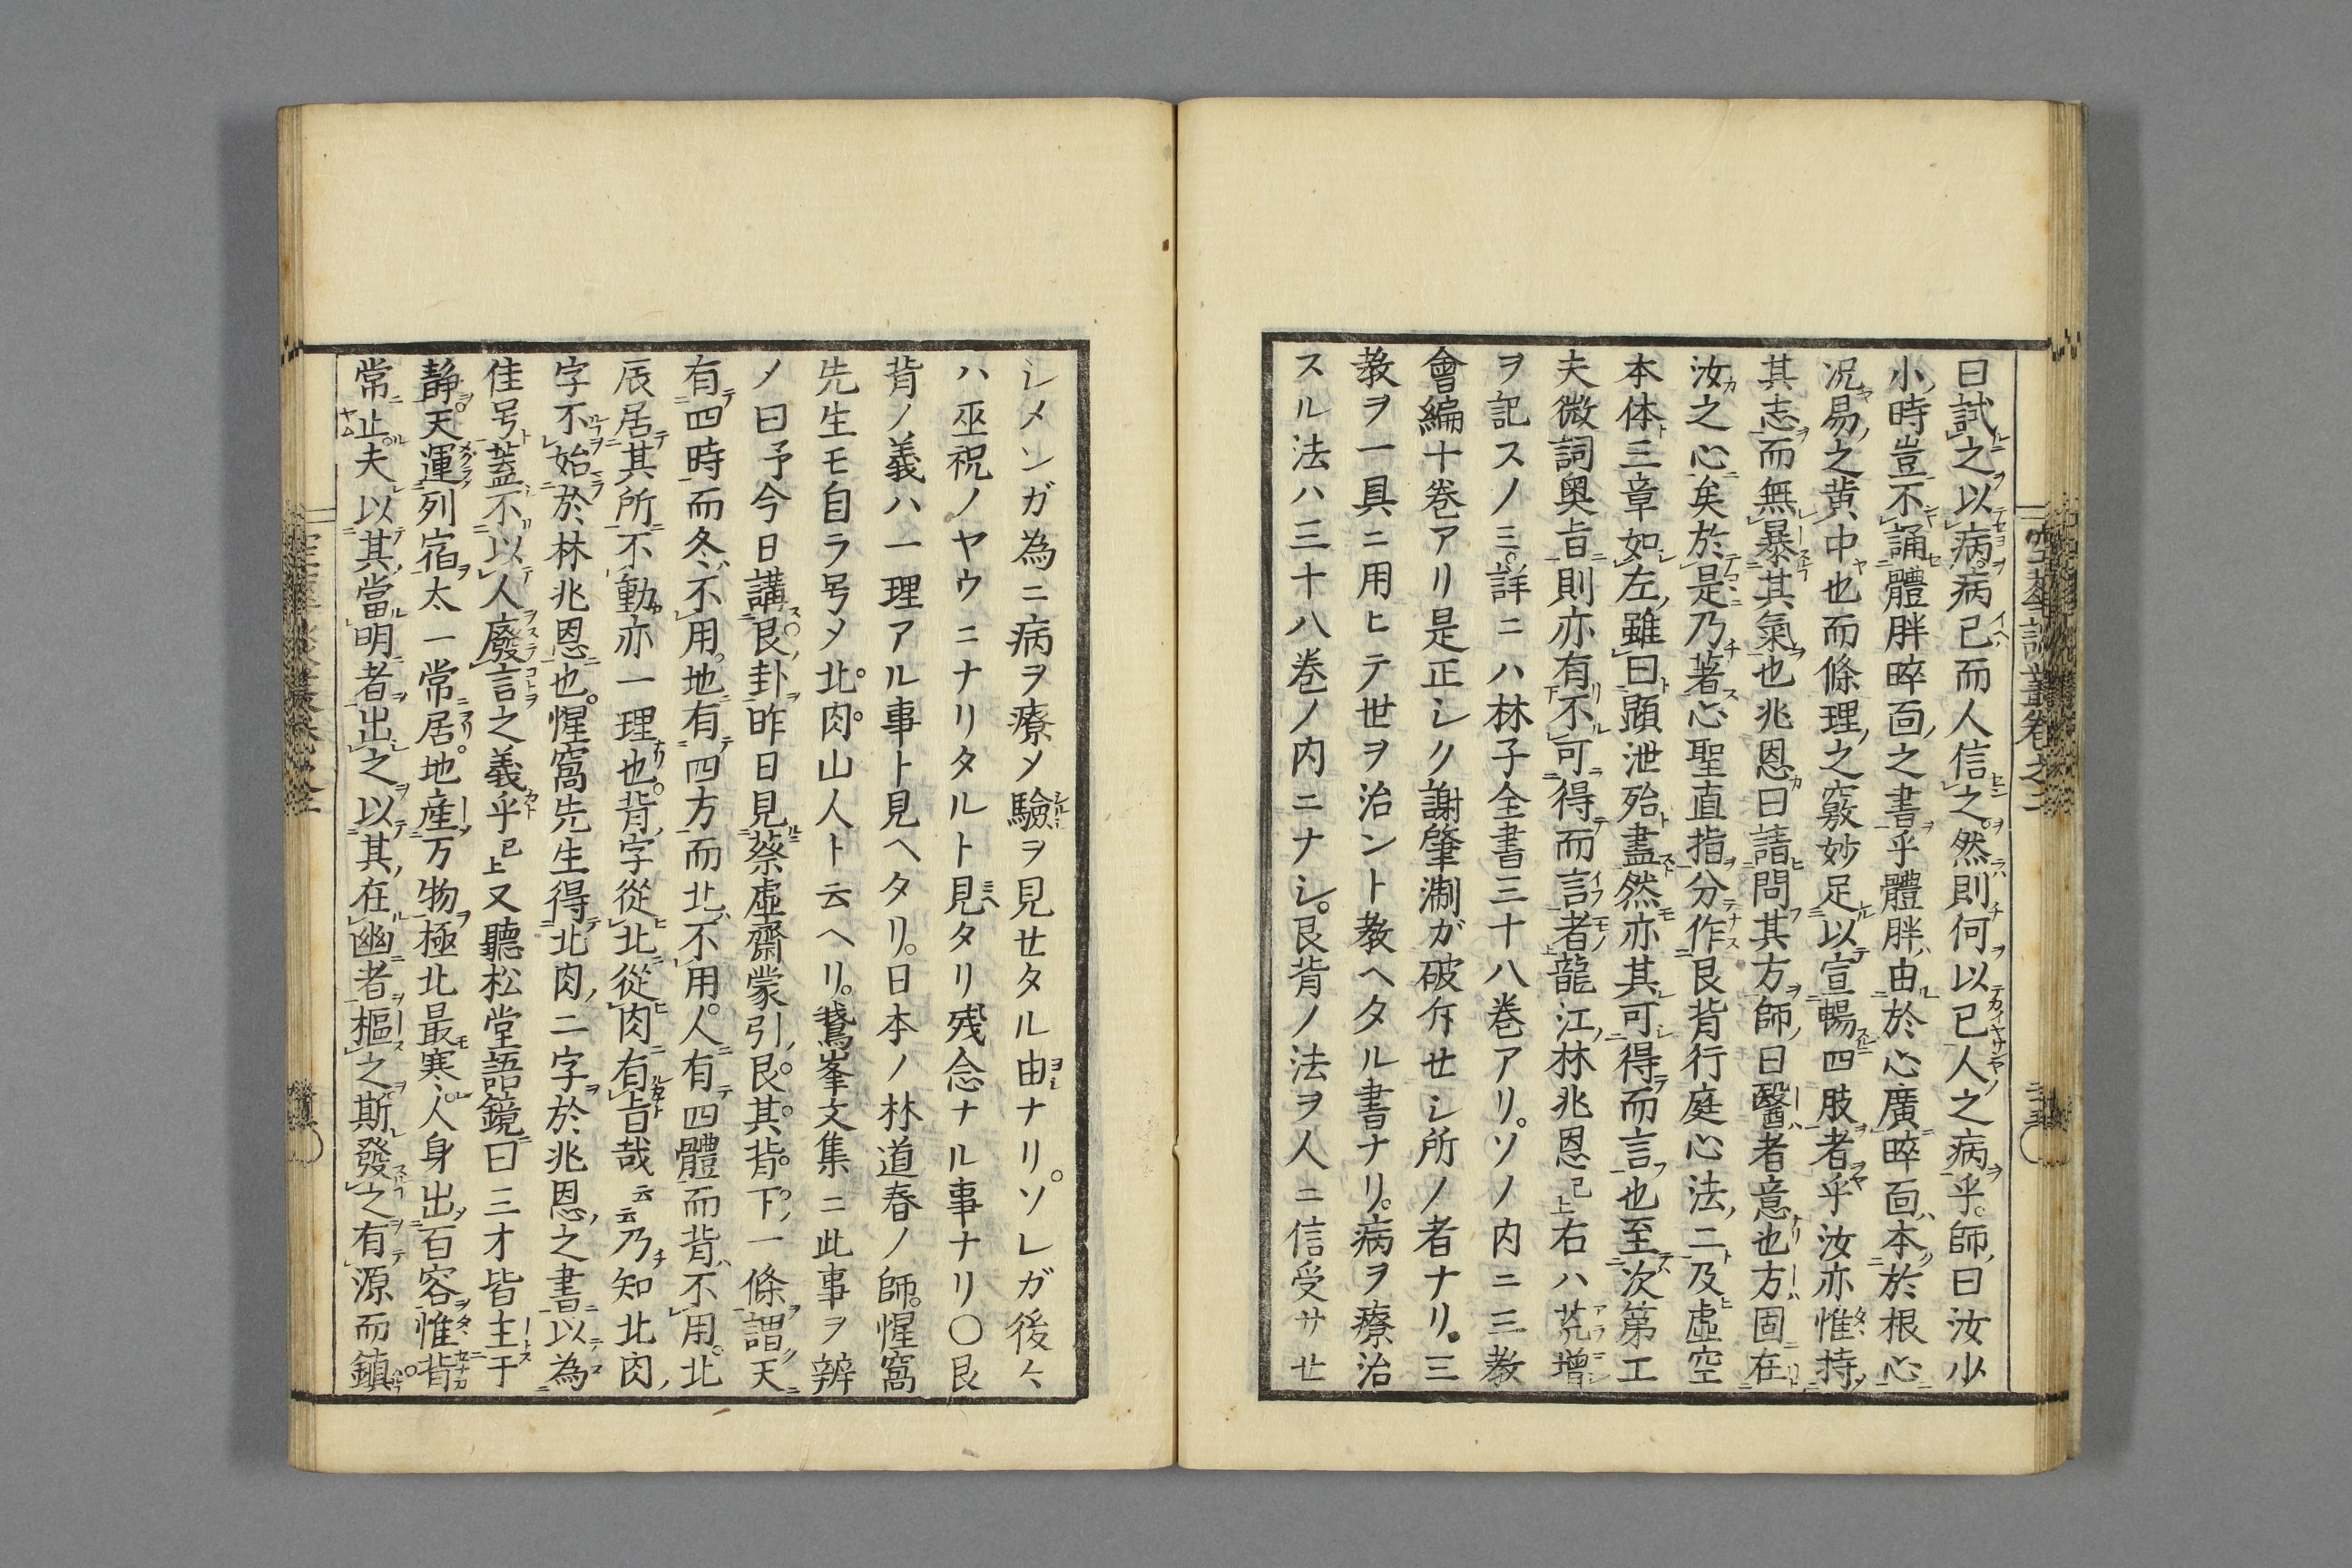 曰試之以病病已而人信之然則何以已人之病乎師曰汝少
小時豈不誦體胖睟面之書乎體胖由於心廣睟面本於根心
况易之黄中也而條理之竅妙足以宣暢四肢者乎汝亦惟持
其志而無暴其氣也兆恩曰請問其方師曰醫者意也方固在
汝之心矣於是乃著心聖直指分作艮背行庭心法二及虚空
本体三章如左雖曰顕泄殆盡然亦其可得而言也至次第工
夫微詞奥旨則亦有不可得而言者龍江林兆恩已上右ハ荒増
ヲ記スノミ詳ニハ林子全書三十八巻アリソノ内ニ三教
會編十巻アリ是正シク謝肇淛ガ破斥セシ所ノ者ナリ三
教ヲ一具ニ用ヒテ世ヲ治ント教ヘタル書ナリ病ヲ療治
スル法ハ三十八巻ノ内ニナシ艮背ノ法ヲ人ニ信受サセ
シメンガ為ニ病ヲ療メ驗ヲ見セタル由ナリソレガ後々
ハ巫祝ノヤウニナリタルト見タリ残念ナル事ナリ〇艮
背ノ義ハ一理アル事ト見ヘタリ日本ノ林道春ノ師惺窩
先生モ自ラ号メ北肉山人ト云ヘリ鵞峯文集ニ此事ヲ辨
メ曰予今日講艮卦昨日見蔡虚齋蒙引艮其背下一條謂天
有四時而冬不用地有四方而北不用人有四體而背不用北
辰居其所不動亦一理也背字從北從肉有旨哉云云乃知北肉
字不始於林兆恩也惺窩先生得北肉二字於兆恩之書以為
佳号蓋不以人廢言之義乎已上又聽松堂語鏡曰三才皆主于
静天運列宿太一常居地産万物極北最寒人身出百容惟背
常止夫以其當明者出之以其在幽者樞之斯發之有源而鎮